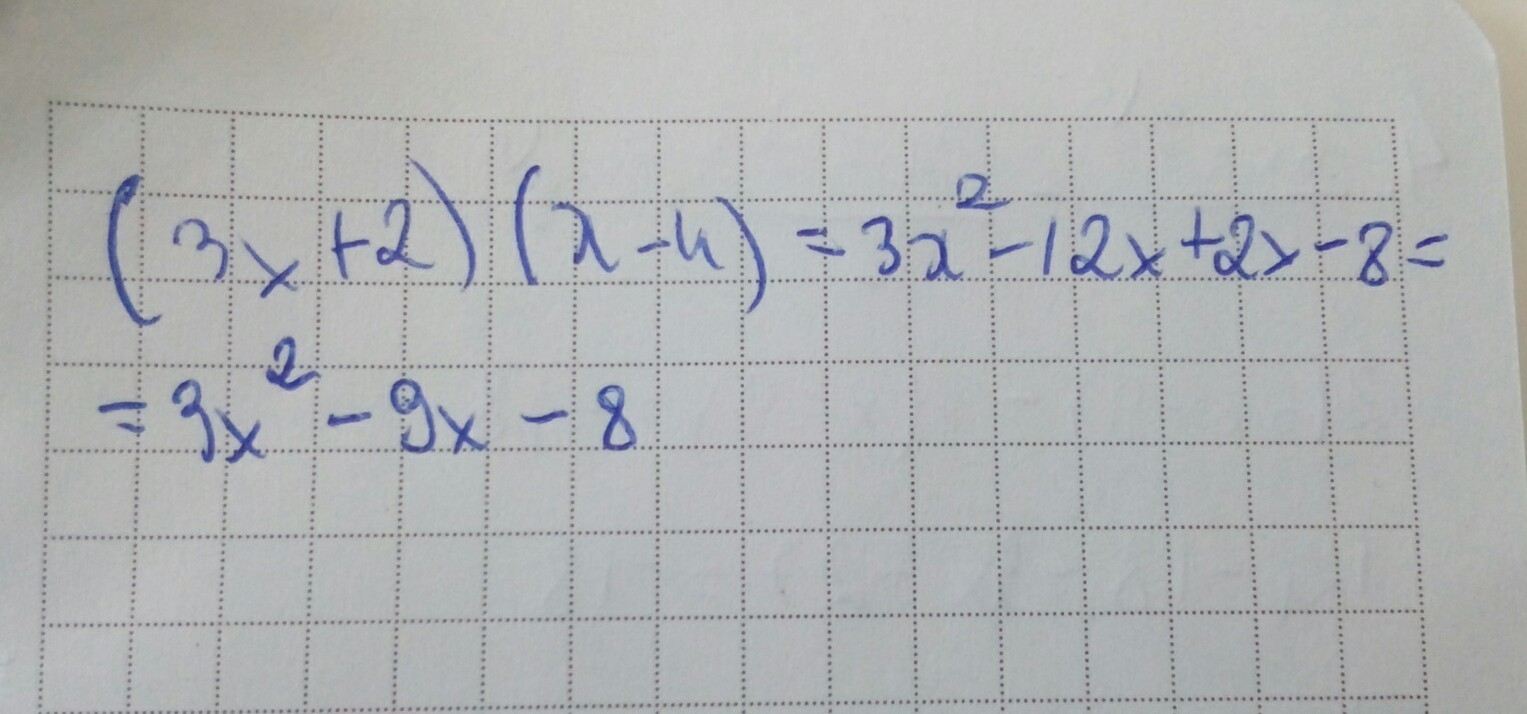 (3x+2)(x-4)=3x²-12x+2x-8=
=3x²-9x-8